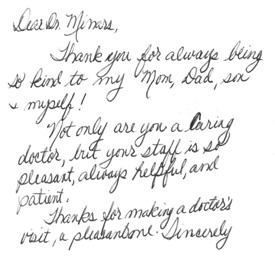 Dear Dr. Minars,
Thank you for always being
so kind to my Mom, Dad, son
& myself!
Not only are you a Caring
doctor, but your staff is so
pleasant, always helpful, and
patient.
Thanks for making a doctor's
visit, a pleasant one. Sincerely